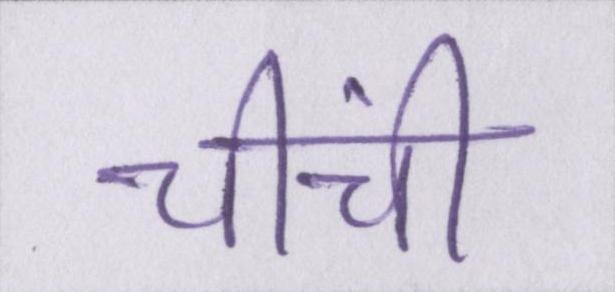 चीचीं